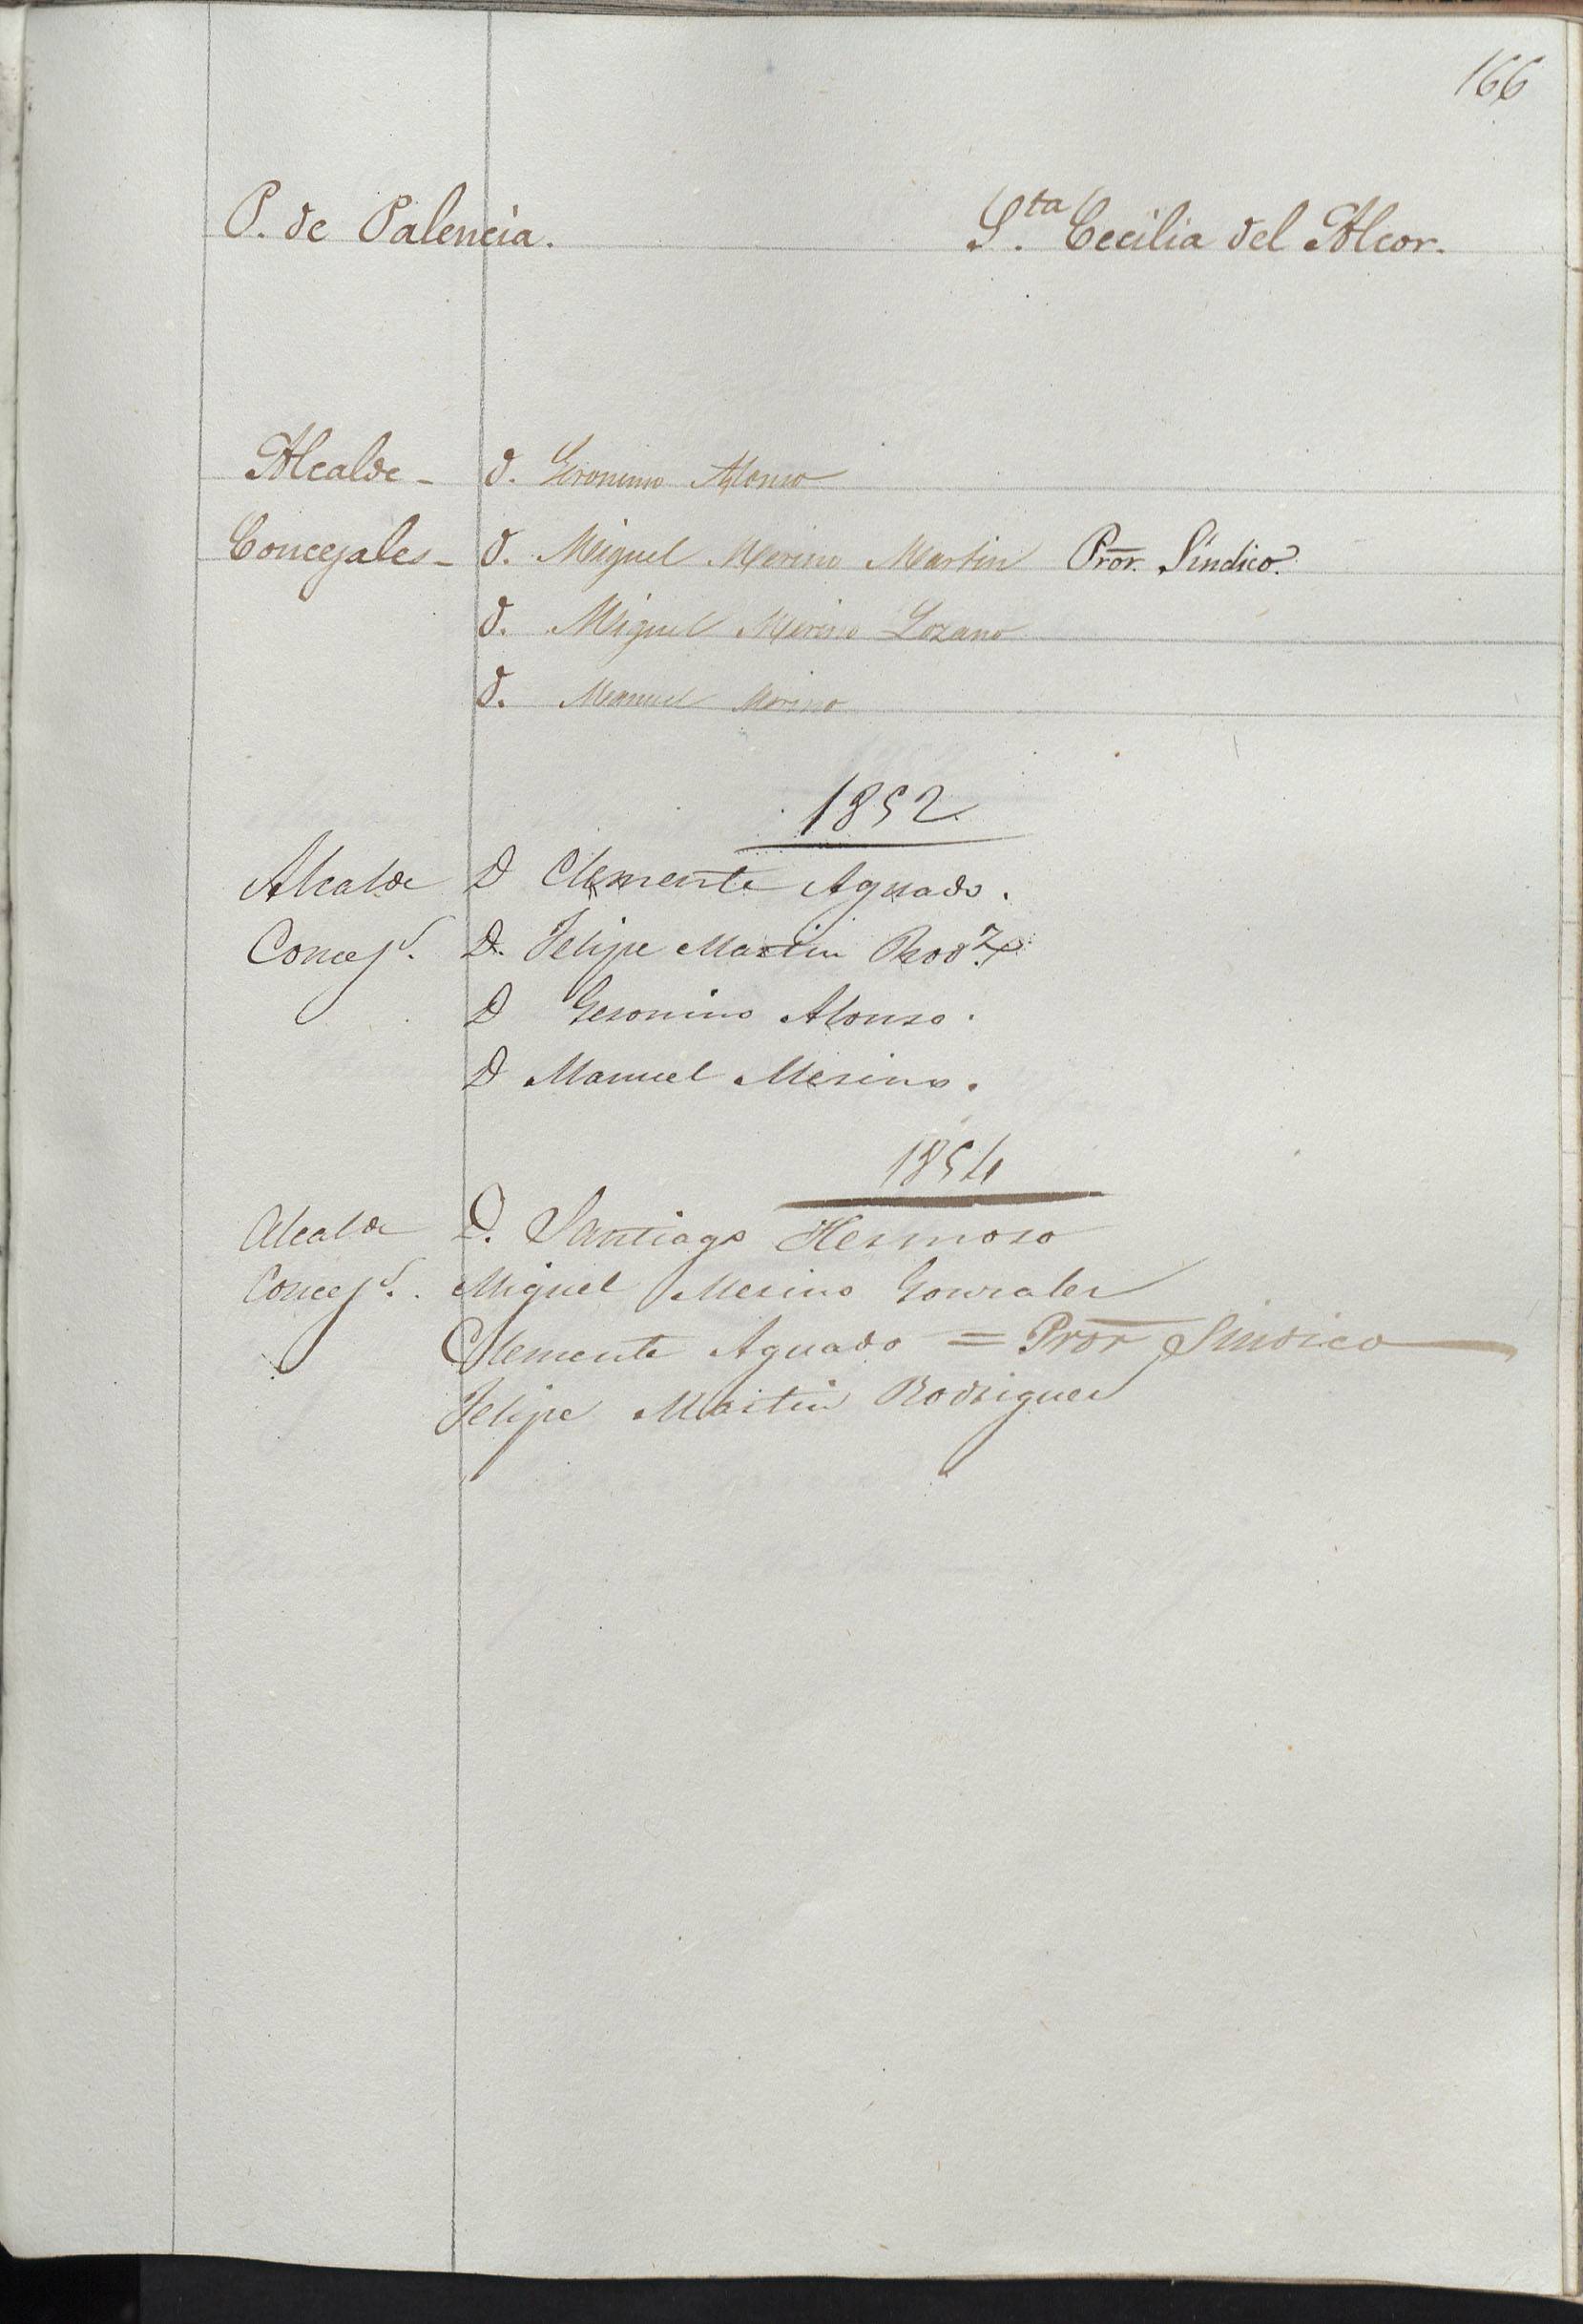 166
P. de Palencia. S.ta Cecilia del Alcor.
Alcalde - D. Geronimo Alonso
Concejales - D. Miguel Merino Martin Pror. Síndico.
D. Miguel Merino Lozano
D. Manuel Merino
1852
Alcalde D Clemente Aguado.
Concejs. D. Felipe Martin Rodz.
D Geronimo Alonso.
D Manuel Merino.
1854
Alcalde D. Santiago Hermoso
Concejs.. Miguel Merino Gonzalez
Clemente Aguado = Pror Sindico
Felipe Martin Rodriguez